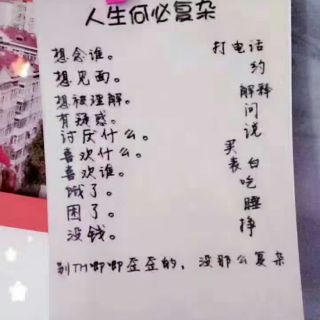 人生何必复杂
想念谁。 打电话
想见面。 约
想被理解。 解释
有疑惑。 问
讨厌什么。 说
喜欢什么。 买
喜欢谁。 表白
饿了。 吃
困了。 睡
没钱。 挣
别TM唧唧歪歪的，没那么复杂